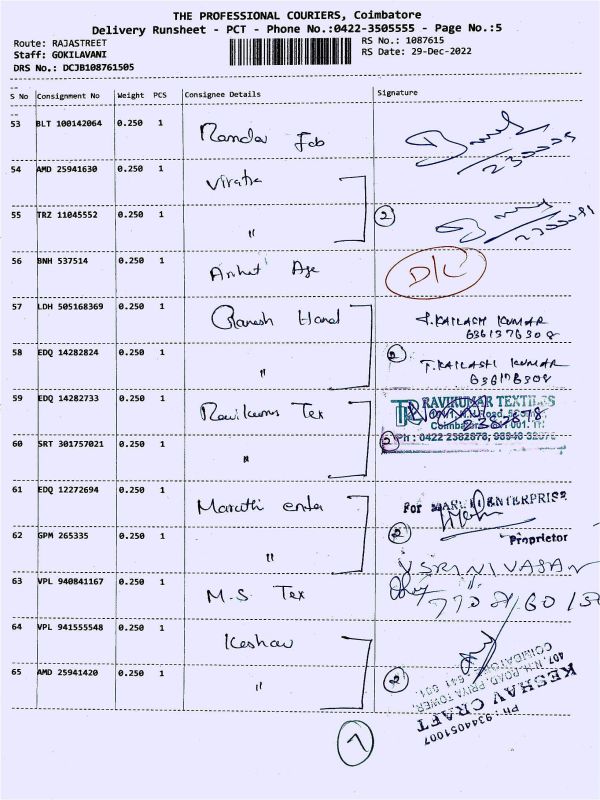 THE PROFESSIONAL COURIERS, Coimbatore
Delivery Runsheet - PCT - Phone No.:0422-3505555 - Page No.:5
Route: RAJASTREET
RS No.: 1087615
Staff: GOKILAVANI
RS Date: 29-Dec-2022
DRS No.: DCJB108761505
S No Consignment No Weight PCS Consignee Details Signature
53 BLT 100142064 0.250 1 Mandar Fab
54 AMD 25941630 0.250 1
55 TRZ 11045552 0.250 1 " 2
56 BNH 537514 0.250 1 Arihat Age D/L
57 LDH 505168369 0.250 1 Ganesh Hand KAILASH KUMAR
58 EDQ 14282824 0.250 1 " 2 T. KAILASH KUMAR
59 EDQ 14282733 0.250 1 Ravikumar Tex RAVIKUMAR TEXTILES
60 SRT 301757021 0.250 1 " 2 Ph : 0422 2382878,
61 EDQ 12272694 0.250 1 Maruthi enter For ENTERPRISE
62 GPM 265335 0.250 1 " 2 Proprietor
63 VPL 940841167 0.250 1 M.S. Tex SRINIVASAN
64 VPL 941555548 0.250 1 Keshav
65 AMD 25941420 0.250 1 " 2
KESHAV CRAFT
407, N.H. ROAD, PRIYA TOWER,
COIMBATORE - 641 001.
Ph : 9344051007
7